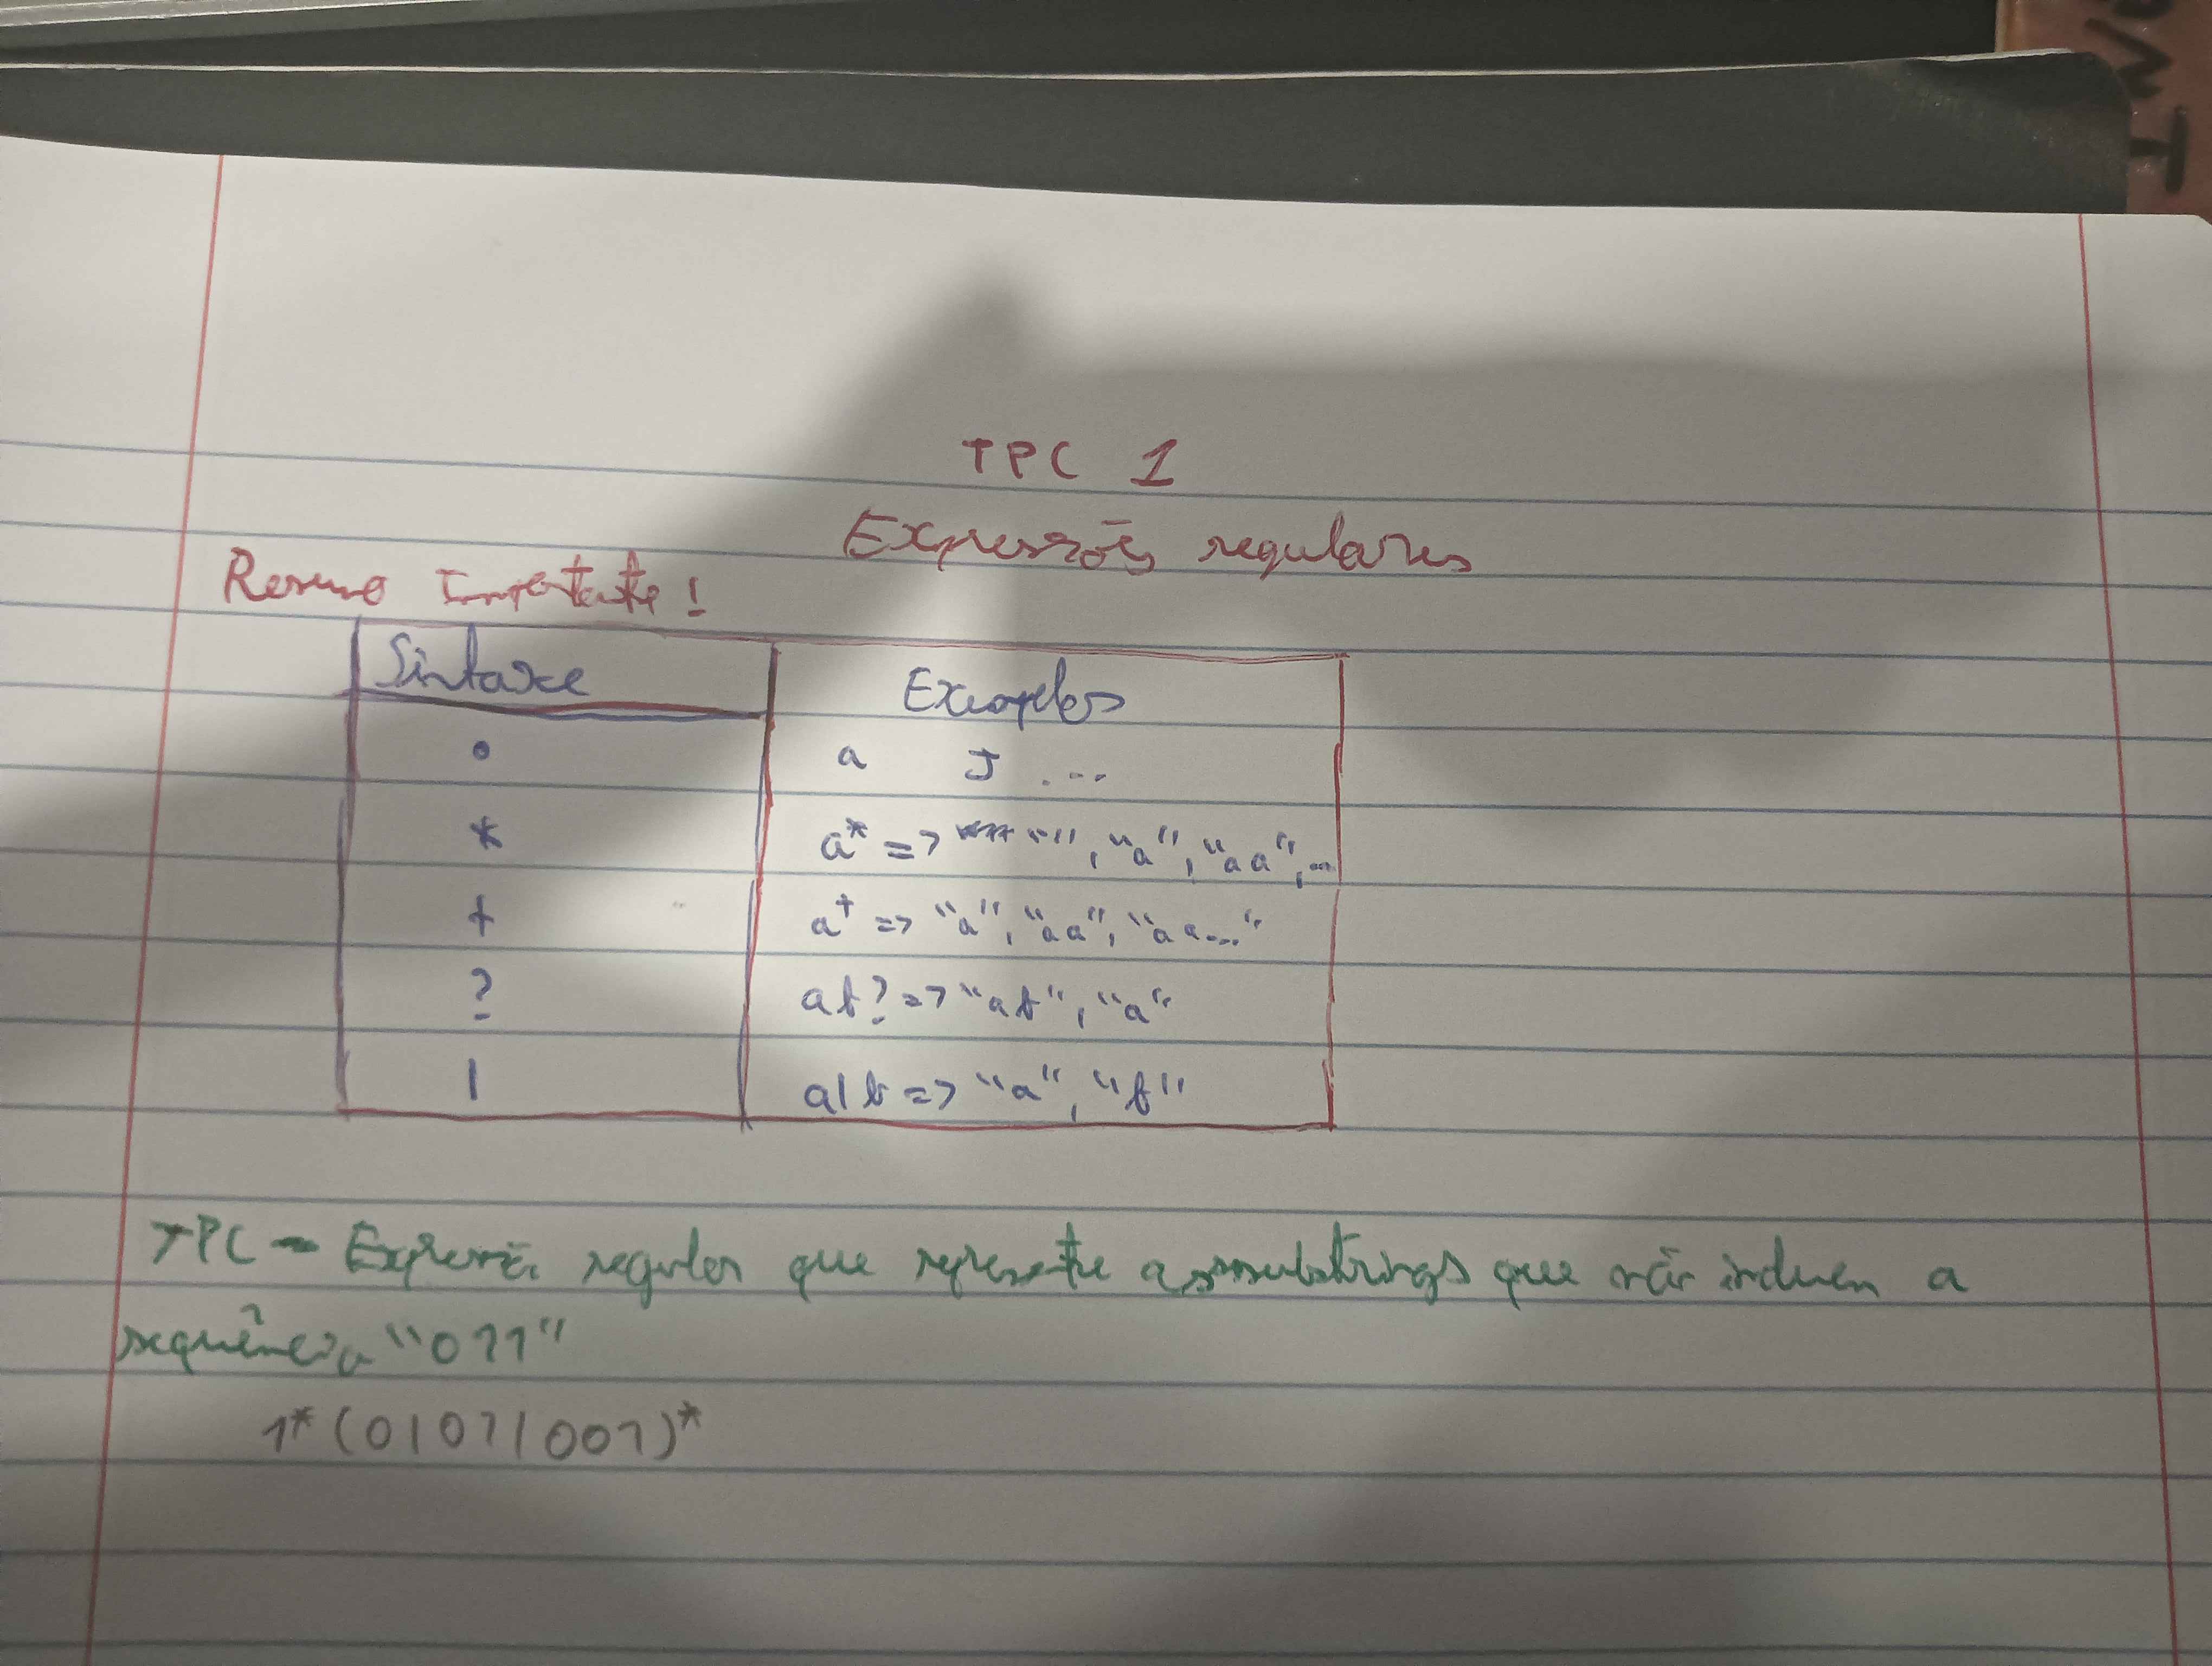 TPC 1
Expressões regulares
Resumo Importante!
Sintaxe Exemplos
. a J ...
* a* => "", "a", "aa", ...
+ a+ => "a", "aa", "aa..."
? ab? => "ab", "a"
| a|b => "a", "b"
TPC - Expressão regular que represente as substrings que não incluem a
sequência "011"
1*(0|01|001)*